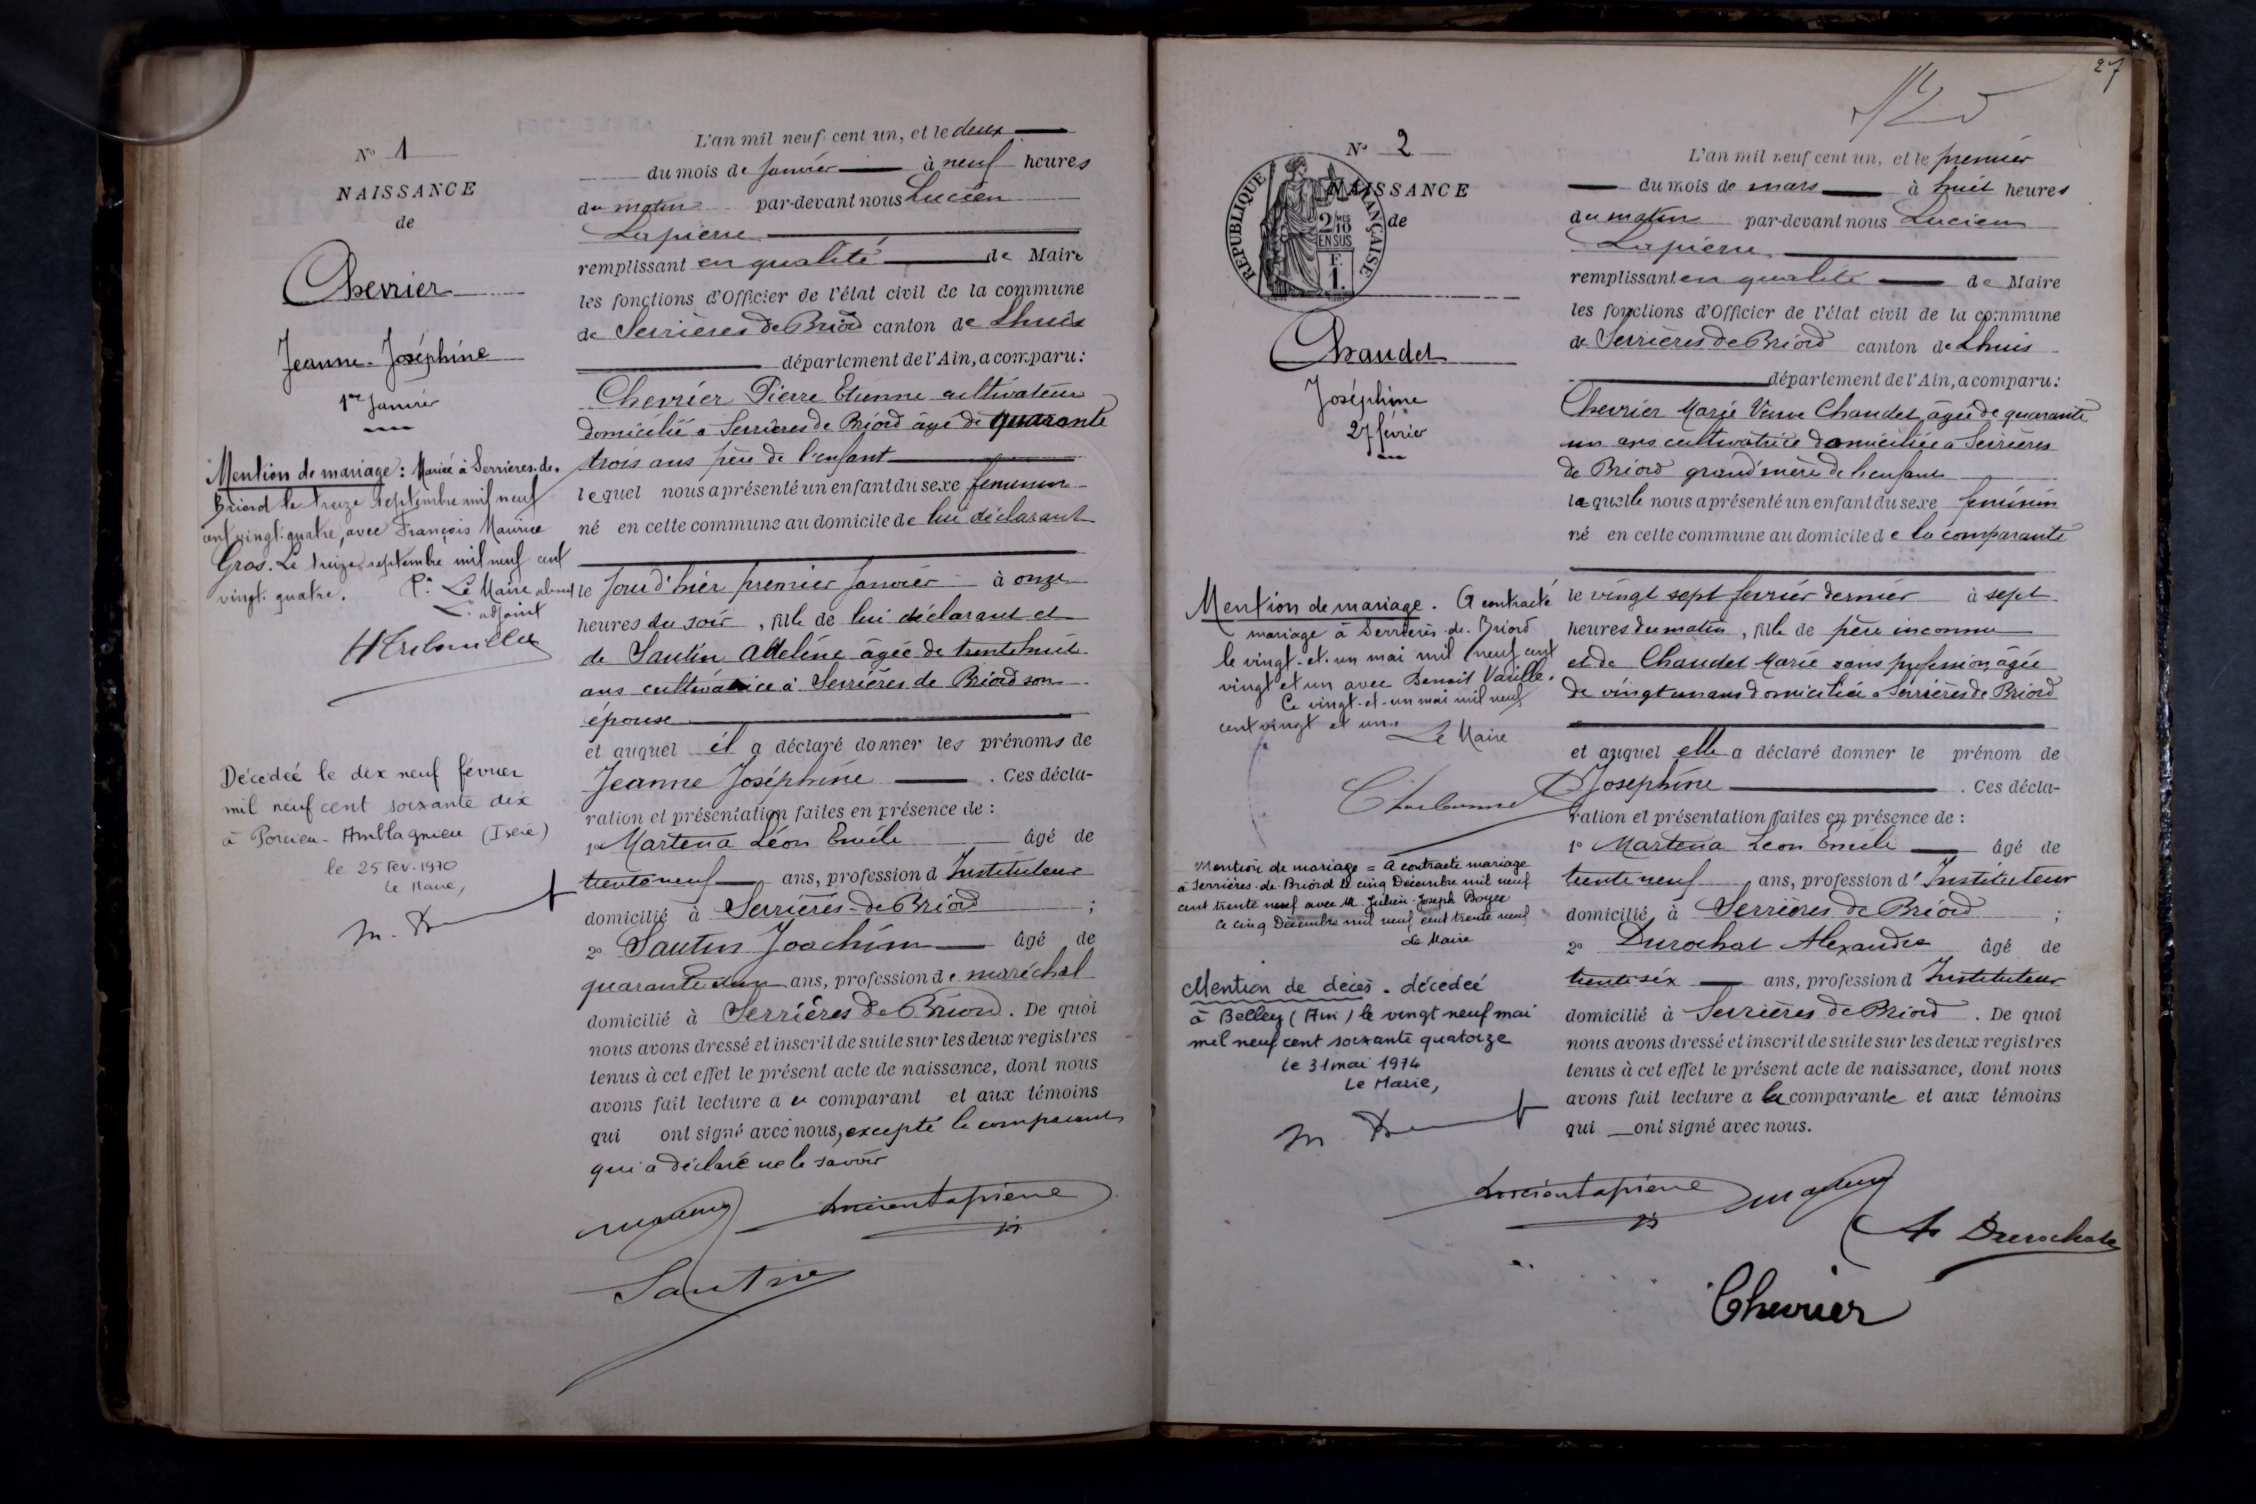 N° 1
NAISSANCE
de
Chevrier
Jeanne-Joséphine
1er Janvier
Mention de mariage : Mariée à Serrières-de-
Briord le treize septembre mil neuf
cent vingt-quatre, avec François Maurice
Gros. Le treize septembre mil neuf cent
vingt-quatre. Pr Le Maire absent
L'adjoint
Décédée le dix neuf février
mil neuf cent soixante dix
à Porcieu-Amblagnieu (Isère)
le 25 Fev. 1970
Le Maire,
L'an mil neuf cent un, et le deux
du mois de Janvier à neuf heures
du matin par-devant nous Lucien
Lapierre
remplissant en qualité de Maire
les fonctions d'Officier de l'état civil de la commune
de Serrières de Briord canton de Lhuis
département de l'Ain, a comparu :
Chevrier Pierre Etienne cultivateur
domicilié à Serrières de Briord âgé de quarante
trois ans père de l'enfant
lequel nous a présenté un enfant du sexe féminin
né en cette commune au domicile de lui déclarant
le jour d'hier premier Janvier à onze
heures du soir, fille de lui déclarant et
de Santin Adeline âgée de trente huit
ans cultivatrice à Serrières de Briord son
épouse
et auquel il a déclaré donner les prénoms de
Jeanne Joséphine . Ces décla-
ration et présentation faites en présence de :
1° Martena Léon Emile âgé de
trente neuf ans, profession d Instituteur
domicilié à Serrières-de Briord ;
2° Santin Joachim âgé de
quarante ans, profession de maréchal
domicilié à Serrières de Briord. De quoi
nous avons dressé et inscrit de suite sur les deux registres
tenus à cet effet le présent acte de naissance, dont nous
avons fait lecture au comparant et aux témoins
qui ont signé avec nous, excepté le comparant
qui a déclaré ne le savoir
Lucien Lapierre
Santin
27
N° 2
NAISSANCE
de
RÉPUBLIQUE FRANÇAISE
2/10
EN SUS
F.
1.
Chaudet
Joséphine
27 février
Mention de mariage. A contracté
mariage à Serrières-de-Briord
le vingt-et-un mai mil neuf cent
vingt et un avec Benoit Vasille.
Ce vingt-et-un mai mil neuf
cent vingt et un.
Le Maire
Mention de mariage = a contracté mariage
à Serrières-de-Briord le cinq Décembre mil neuf
cent trente neuf avec M. Julien-Joseph Boyer
Ce cinq Décembre mil neuf cent trente neuf
Le Maire
Mention de décès. décédée
à Belley (Ain) le vingt neuf mai
mil neuf cent soixante quatorze
le 31 mai 1974
Le Maire,
L'an mil neuf cent un, et le premier
du mois de mars à huit heures
du matin par-devant nous Lucien
Lapierre
remplissant en qualité de Maire
les fonctions d'Officier de l'état civil de la commune
de Serrières de Briord canton de Lhuis
département de l'Ain, a comparu :
Chevrier Marie Veuve Chaudet âgée de quarante
un ans cultivatrice domiciliée à Serrières
de Briord grand'mère de l'enfant
laquelle nous a présenté un enfant du sexe féminin
né en cette commune au domicile de la comparante
le vingt sept février dernier à sept
heures du matin, fille de père inconnu
et de Chaudet Marie sans profession âgée
de vingt un ans domiciliée à Serrières de Briord
et auquel elle a déclaré donner le prénom de
Joséphine . Ces décla-
ration et présentation faites en présence de :
1° Martena Léon Emile âgé de
trente neuf ans, profession d'Instituteur
domicilié à Serrières de Briord ;
2° Durochat Alexandre âgé de
trente six ans, profession d Instituteur
domicilié à Serrières de Briord . De quoi
nous avons dressé et inscrit de suite sur les deux registres
tenus à cet effet le présent acte de naissance, dont nous
avons fait lecture a la comparante et aux témoins
qui ont signé avec nous.
Lucien Lapierre
A Durochat
Chevrier